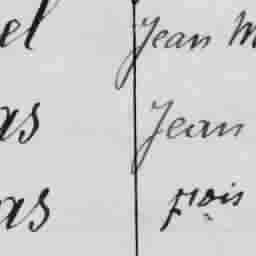 el Jean M
as Jean
as frois